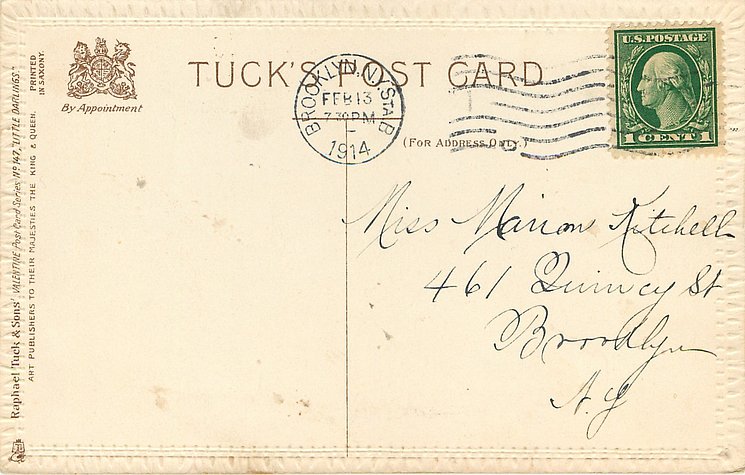 TUCK'S POST CARD
By Appointment
BROOKLYN, N.Y. STA. B
FEB 13
7 30 PM
1914
U.S. POSTAGE
1 CENT 1
(FOR ADDRESS ONLY.)
Miss Marion Kitchell
461 Quincy St
Brooklyn
N.Y
Raphael Tuck & Sons' VALENTINE Post Card Series No 147, "LITTLE DARLINGS."
ART PUBLISHERS TO THEIR MAJESTIES THE KING & QUEEN.
PRINTED
IN SAXONY.